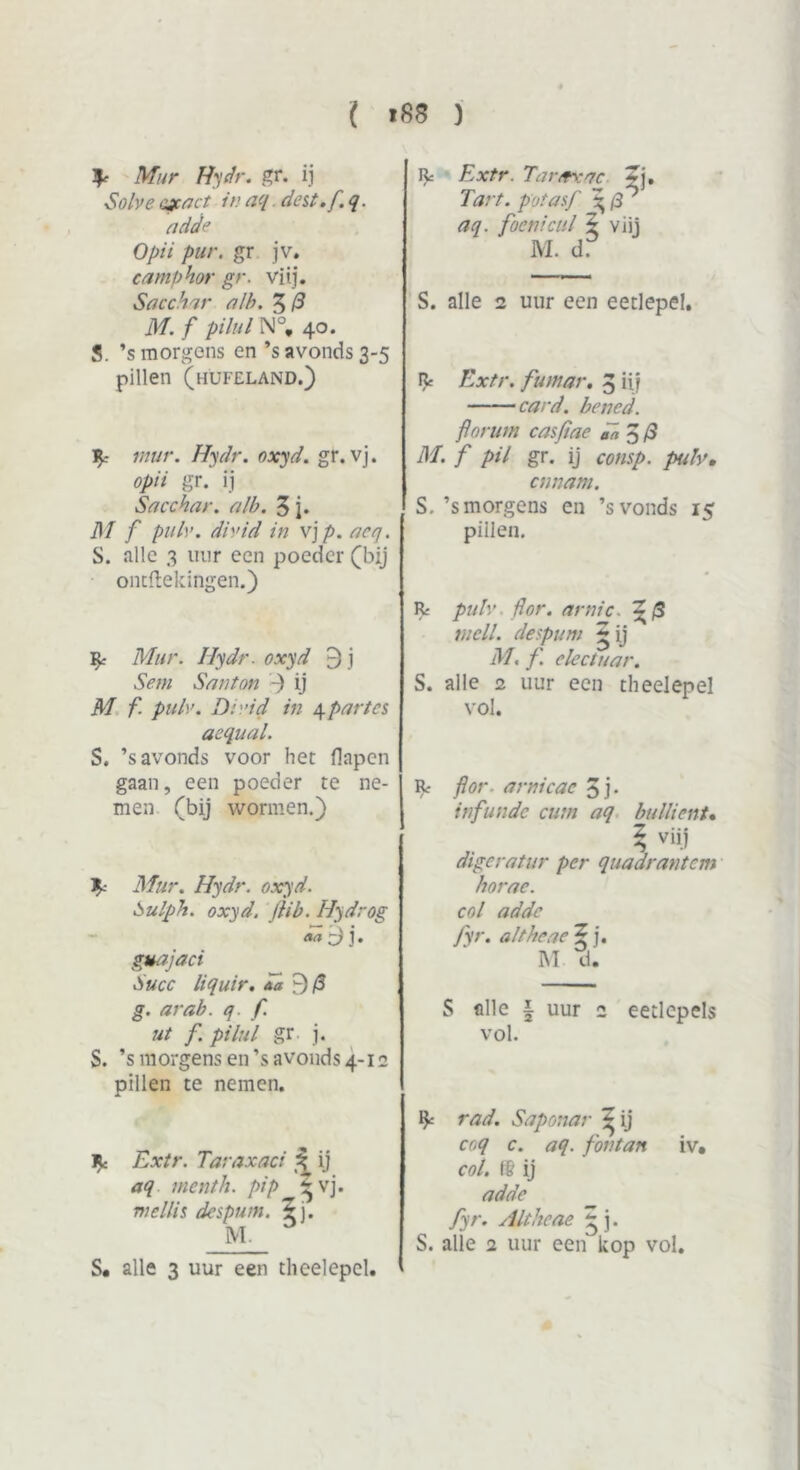 ( 188 )
℞ Mur Hydr. gr. ij
Solve exact in aq. dest. ſ. q.
adde
Opii pur. gr jv.
camphor gr. viij.
Sacchar alb. ʒ β
M. f pilul N°. 40.
S. 's morgens en 's avonds 3-5
pillen (HUFELAND.)
℞ mur. Hydr. oxyd. gr. vj.
opii gr. ij
Sacchar. alb. ʒ j.
M f pulv. divid in vj p. aeq.
S. alle 3 uur een poeder (bij
ontſtekingen.)
℞ Mur. Hydr. oxyd ℈ j
Sem Santon ℈ ij
M f. pulv. Divid in 4 partes
aequal.
S. 's avonds voor het ſlapen
gaan, een poeder te ne-
men (bij wormen.)
℞ Mur. Hydr. oxyd.
Sulph. oxyd. ſtib. Hydrog
aa ℈ j.
guajaci
Succ liquir. aa ℈ β
g. arab. q. ſ.
ut f. pilul gr. j.
S. 's morgens en 's avonds 4-12
pillen te nemen.
℞ Extr. Taraxaci ℥ ij
aq. menth. pip ℥ vj.
mellis despum. ℥ j.
M.
S. alle 3 uur een theelepel.
℞ Extr. Taraxac. ℥j.
Tart. potasſ ℥ β
aq. foenicul ℥ viij
M. d.
S. alle 2 uur een eetlepel.
℞ Extr. fumar. ʒ iij
—— card. bened.
florum casſiae aa ʒ β
M. f pil gr. ij consp. pulv.
cnnam.
S. 's morgens en 's vonds 15
pillen.
℞ pulv. flor. arnic. ℥ β
mell. despum ℥ ij
M. f. electuar.
S. alle 2 uur een theelepel
vol.
℞ flor. arnicae ʒ j.
infunde cum aq. bullient.
℥ viij
digeratur per quadrantem
horae.
col adde
ſyr. altheae ℥ j.
M d.
S alle ½ uur 2 eetlepels
vol.
℞ rad. Saponar ℥ ij
coq c. aq. fontan iv.
col. ℔ ij
adde
ſyr. Altheae ℥ j.
S. alle 2 uur een kop vol.